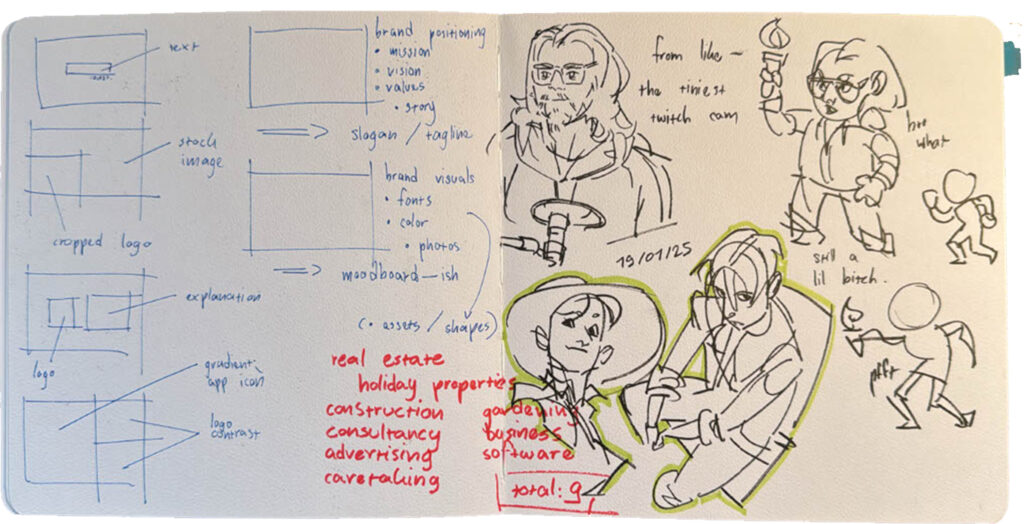 text
stock
image
cropped logo
explanation
logo
gradient
app icon
logo
contrast
brand positioning
• mission
• vision
• values
• story
slogan / tagline
brand visuals
• fonts
• color
• photos
moodboard—ish
(• assets / shapes)
real estate
holiday properties
construction gardening
consultancy business
advertising software
caretaking
total: 9
from like —
the tiniest
twitch cam
19/01/25
bro
what
still a
lil bitch.
pfft